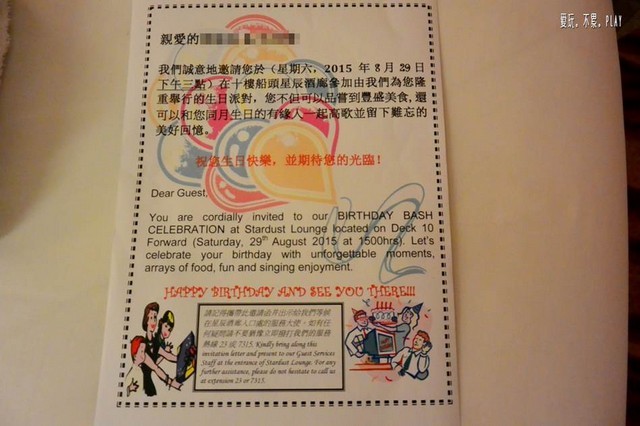 愛玩, 不累, PLAY
親愛的
我們誠意地邀請您於(星期六, 2015 年 8 月 29 日
下午三點)在十樓船頭星辰酒廊參加由我們為您隆
重舉行的生日派對, 您不但可以品嘗到豐盛美食, 還
可以和您同月生日的有緣人一起高歌並留下難忘的
美好回憶。
祝您生日快樂, 並期待您的光臨!
Dear Guest,
You are cordially invited to our BIRTHDAY BASH
CELEBRATION at Stardust Lounge located on Deck 10
Forward (Saturday, 29th August 2015 at 1500hrs). Let's
celebrate your birthday with unforgettable moments,
arrays of food, fun and singing enjoyment.
HAPPY BIRTHDAY AND SEE YOU THERE!!!
請記得攜帶此邀請函并出示給我們等候
在星辰酒廊入口處的服務大使。如有任
何疑問請不要猶豫立即撥打我們的服務
熱線 23 或 7315. Kindly bring along this
invitation letter and present to our Guest Services
Staff at the entrance of Stardust Lounge. For any
further assistance, please do not hesitate to call us
at extension 23 or 7315.